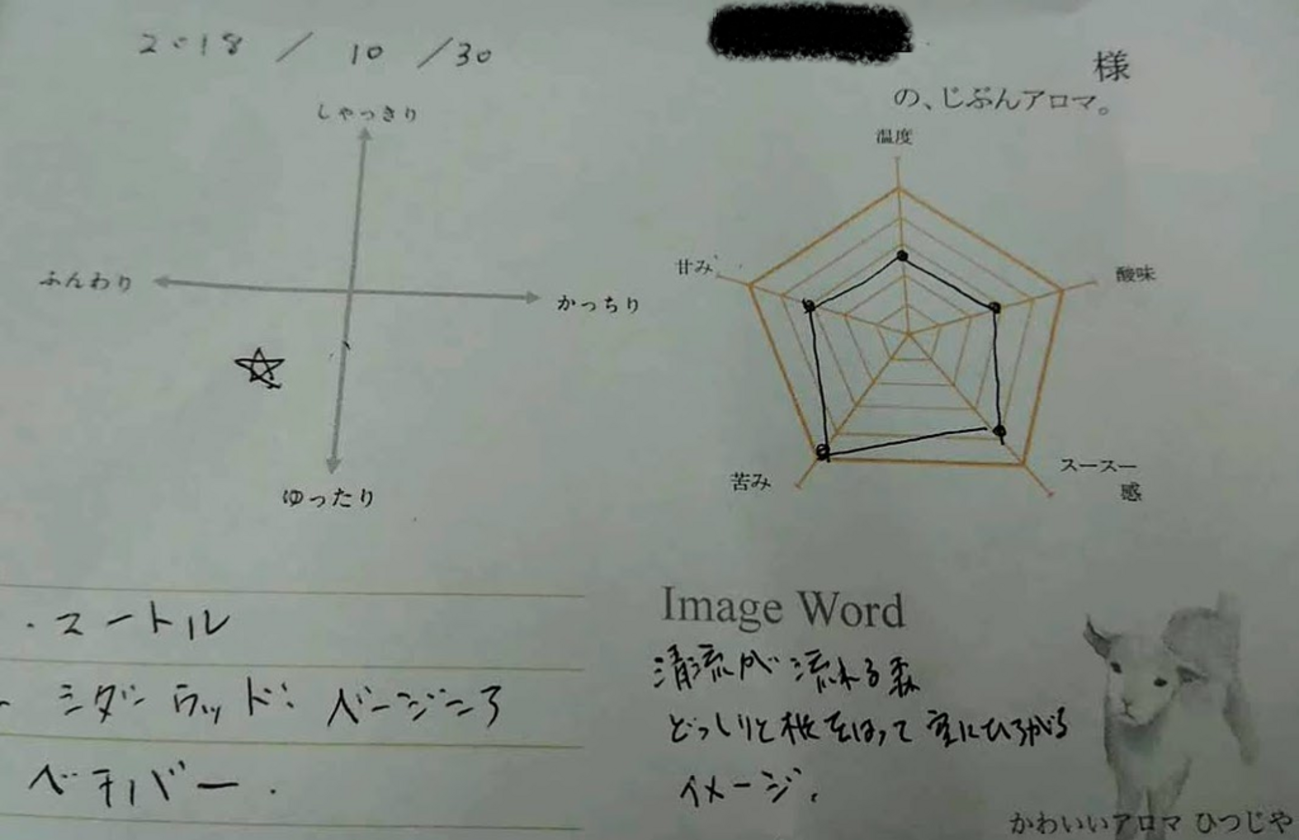 2018 / 10 /30
様
の、じぶんアロマ。
しゃっきり
ふんわり
かっちり
ゆったり
温度
甘み
酸味
苦み
スースー
感
・ヌートル
シダーウッド:ベージニア
ベチバー.
Image Word
清流が流れる森
どっしりと根をはって空にひろがる
イメージ.
かわいいアロマ ひつじや